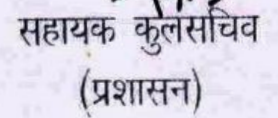 सहायक कुलसचिव
(प्रशासन)